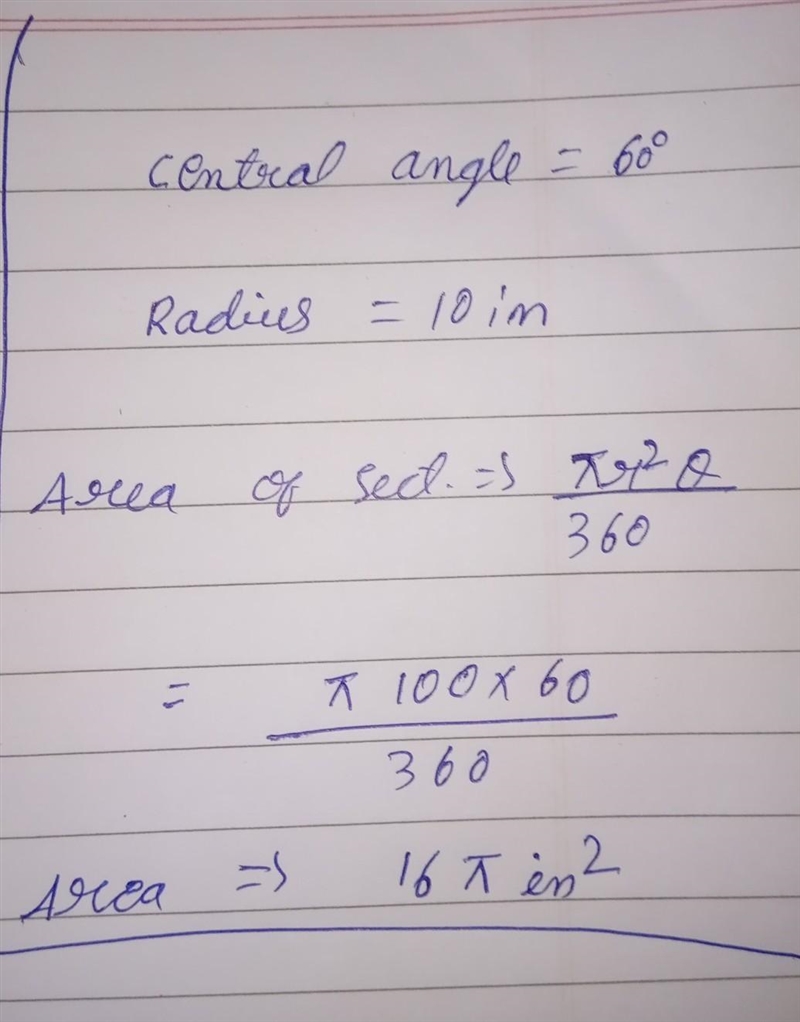 Central angle = 60°
Radius = 10 in
Area of sect. => πr²θ
360
= π 100 x 60
360
Area => 16 π in²